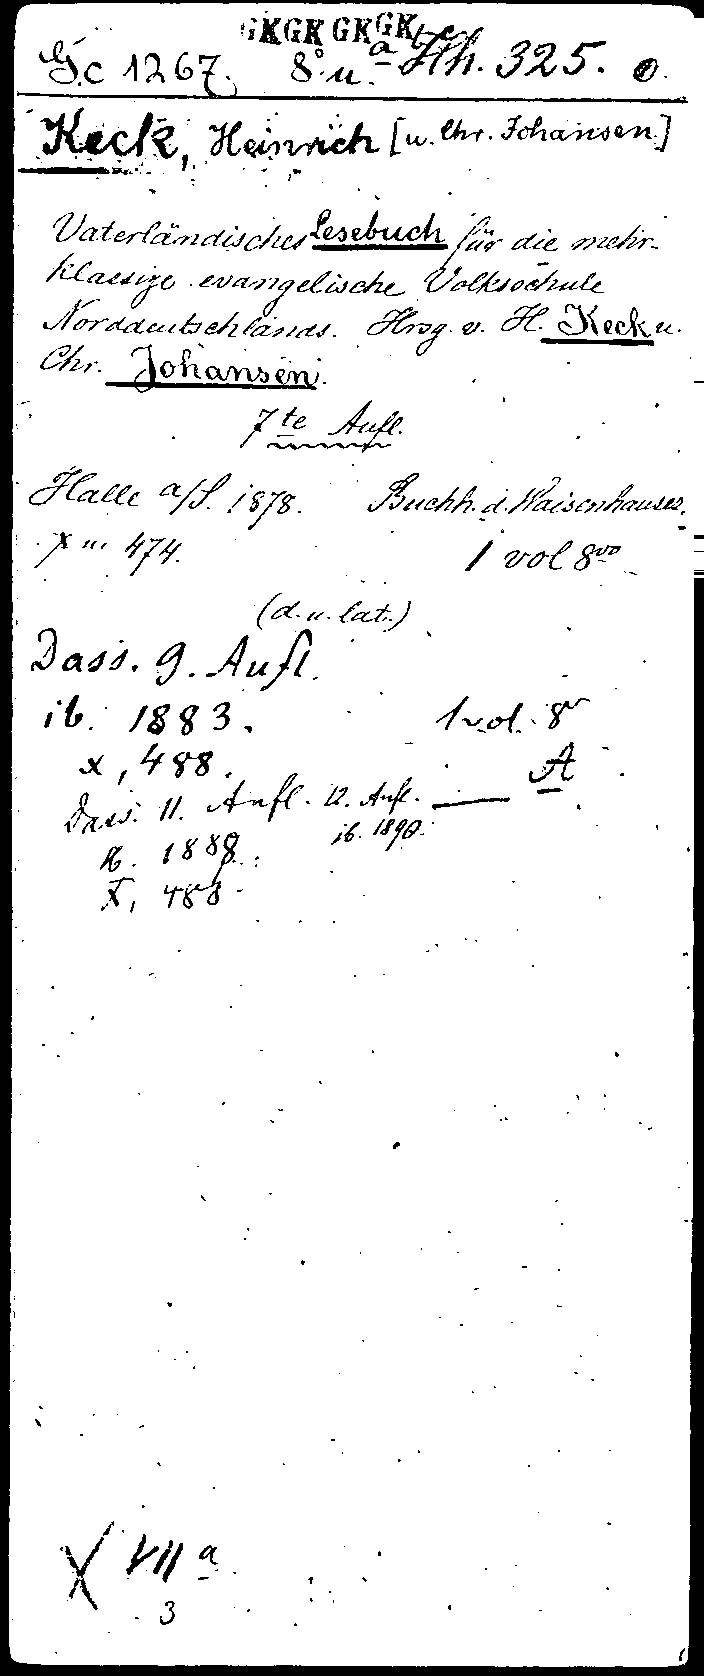 GK GK GK GK
Gc 1267. 8° u. a Hh. 325. o.
Keck, Heinrich [u. Chr. Johansen]
Vaterländisches Lesebuch für die mehr-
klassige evangelische Volksschule
Norddeutschlands. Hrsg. v. H. Keck u.
Chr. Johansen.
7te Aufl.
Halle a/S. 1878. Buchh. d. Waisenhauses.
X u. 474. 1 vol 8vo
(d. u. lat.)
Dass. 9. Aufl.
ib. 1883. 1 vol. 8v
x, 488. A
Dass. 11. Aufl. 12. Aufl.
ib. 1888. ib. 1890.
X, 488.
X VII a
3